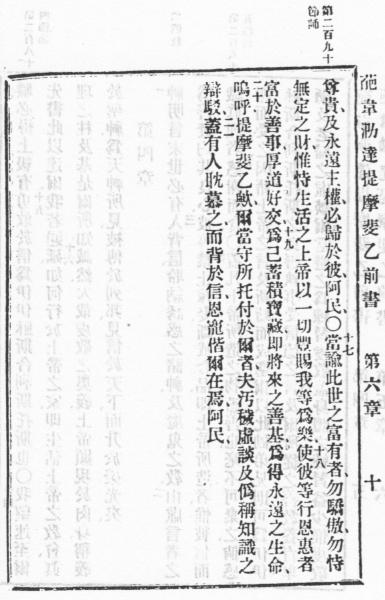 葩韋洂達提摩斐乙前書 第六章 十
尊貴及永遠主權必歸於彼阿民○十七當諭此世之富有者勿驕傲勿恃
無定之財惟恃生活之上帝以一切豐賜我等爲樂十八使彼等行恩惠者
富於善事厚道好交十九爲己蓄積寶藏卽將來之善基爲得永遠之生命
二十嗚呼提摩斐乙歟爾當守所托付於爾者夫汚穢虛談及僞稱知識之
辯駁二一蓋有人耽慕之而背於信恩寵偕爾在焉阿民
第二百九十
節誦